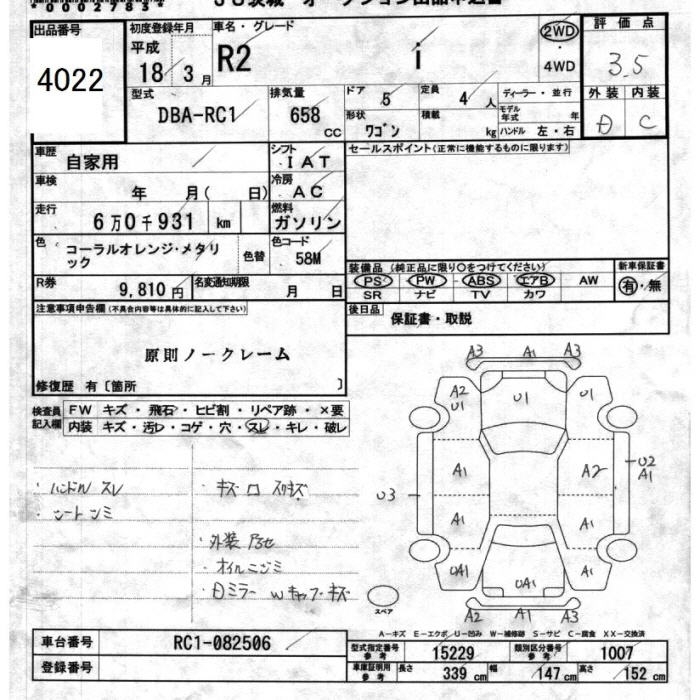 00027883
出品番号
4022
初度登録年月
平成
18 3 月
車名・グレード
R2
i
2WD
・
4WD
評価点
3.5
外装 内装
D C
型式
DBA-RC1
排気量
658
CC
ドア
5
定員
4 人
ディーラー・並行
形状
ワゴン
積載
kg
モデル年式 年
ハンドル 左・右
車歴
自家用
シフト
IAT
セールスポイント(正常に機能するものに限ります)
車検
年 月( 日)
冷房
AC
走行
6万0千931 km
燃料
ガソリン
色
コーラルオレンジ・メタリ
ック
色替
色コード
58M
R券
9,810円
名変通知期限
月 日
装備品(純正品に限り○をつけてください)
PS PW ABS エアB AW
SR ナビ TV カワ
新車保証書
有・無
注意事項申告欄(不具合内容等は具体的に記入して下さい)
後日品
保証書・取説
原則ノークレーム
修復歴 有〔箇所 〕
検査員
記入欄
FW キズ・飛石・ヒビ割・リペア跡・×要
内装 キズ・汚レ・コゲ・穴・スレ・キレ・破レ
・ハンドル スレ
・シートシミ
・キズ ロ スリキズ
・外装
・オイルニジミ
・
A3 A1 A3
A2
U1
U1
U1
A1
A2
U2
A1
U3
A1
A1
UA1
UA1
A1
A2 A1 A3
スペア
A－キズ E－エクボ U－凹み W－補修跡 S－サビ C－腐食 XX－交換済
車台番号
RC1-082506
登録番号
型式指定番号
参考
15229
類別区分番号
参考
1007
車庫証明用
参考
長さ
339 cm
幅
147 cm
高さ
152 cm